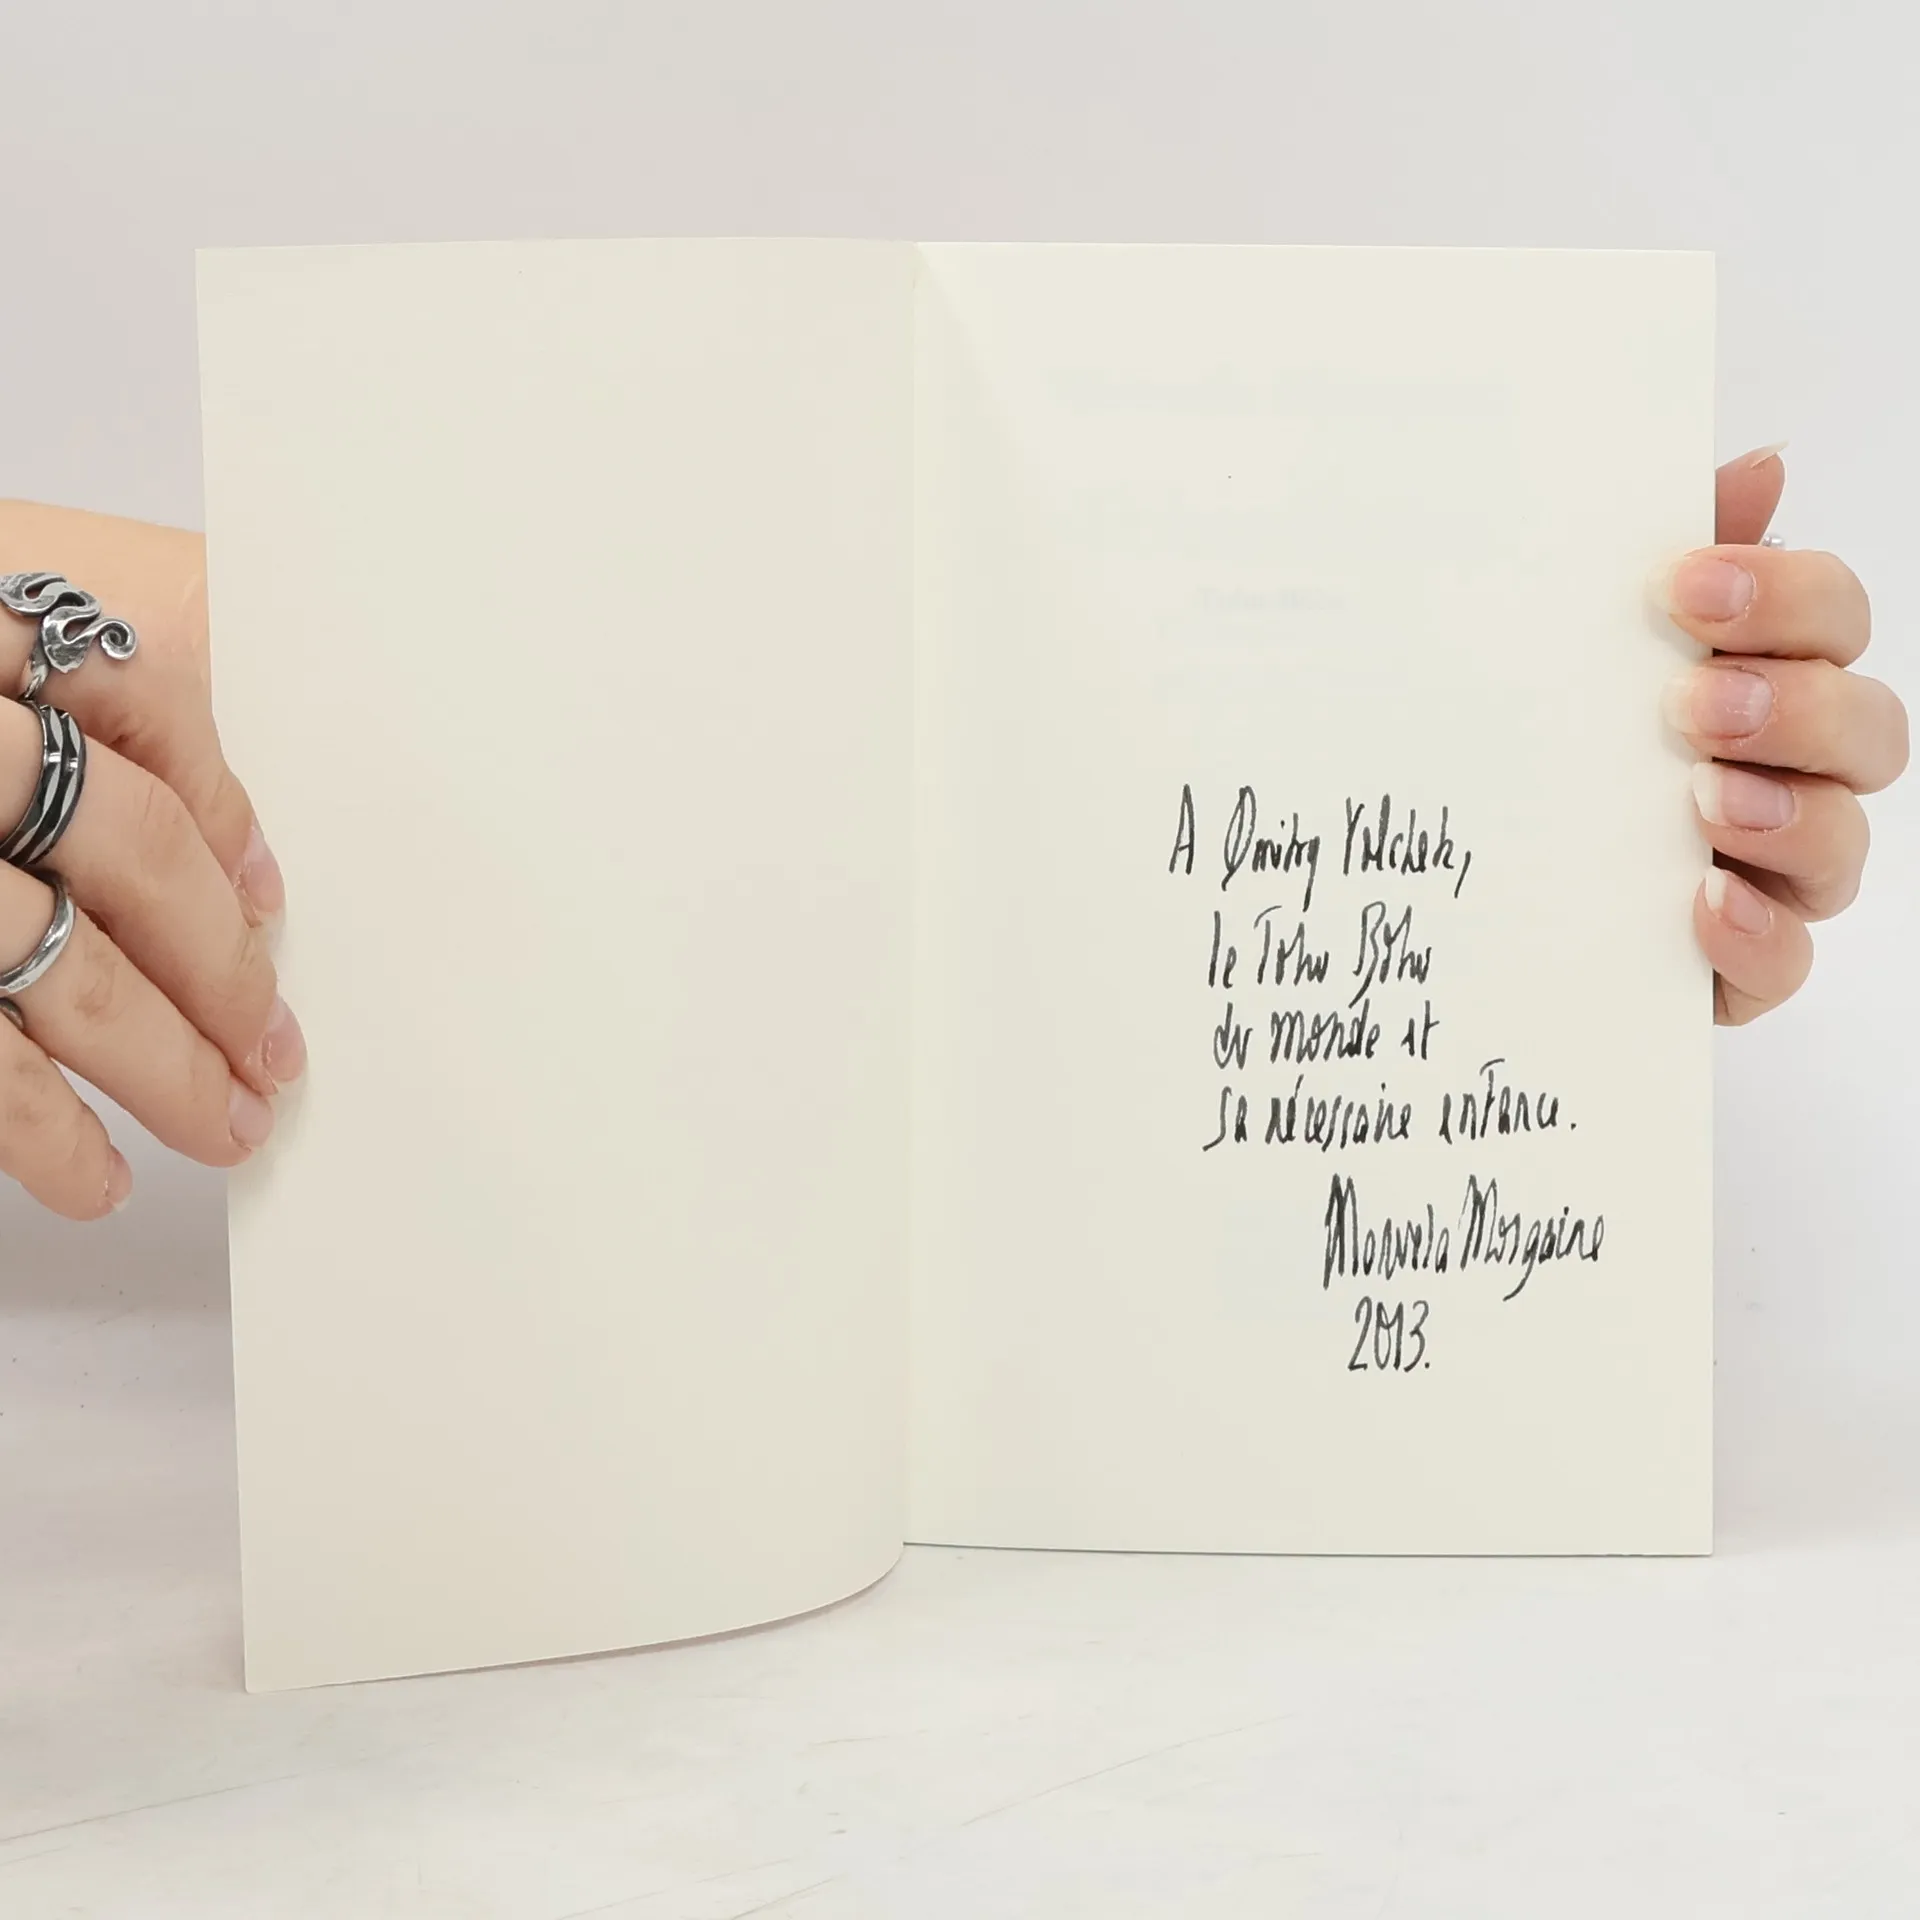 A Dmitry Volchek,
le Tohu Bohu
du monde et
sa nécessaire enfance.
Manuela Morgaine
2013.